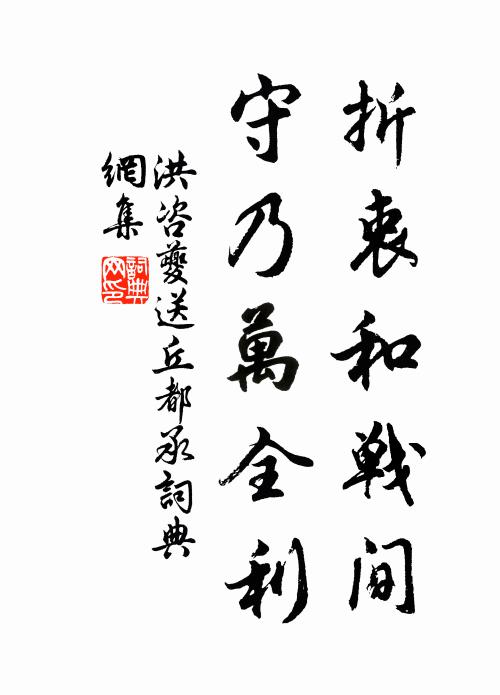 折衷和戦间
守乃萬全利
洪咨夔送丘都承詞典
網集
詞典
网印